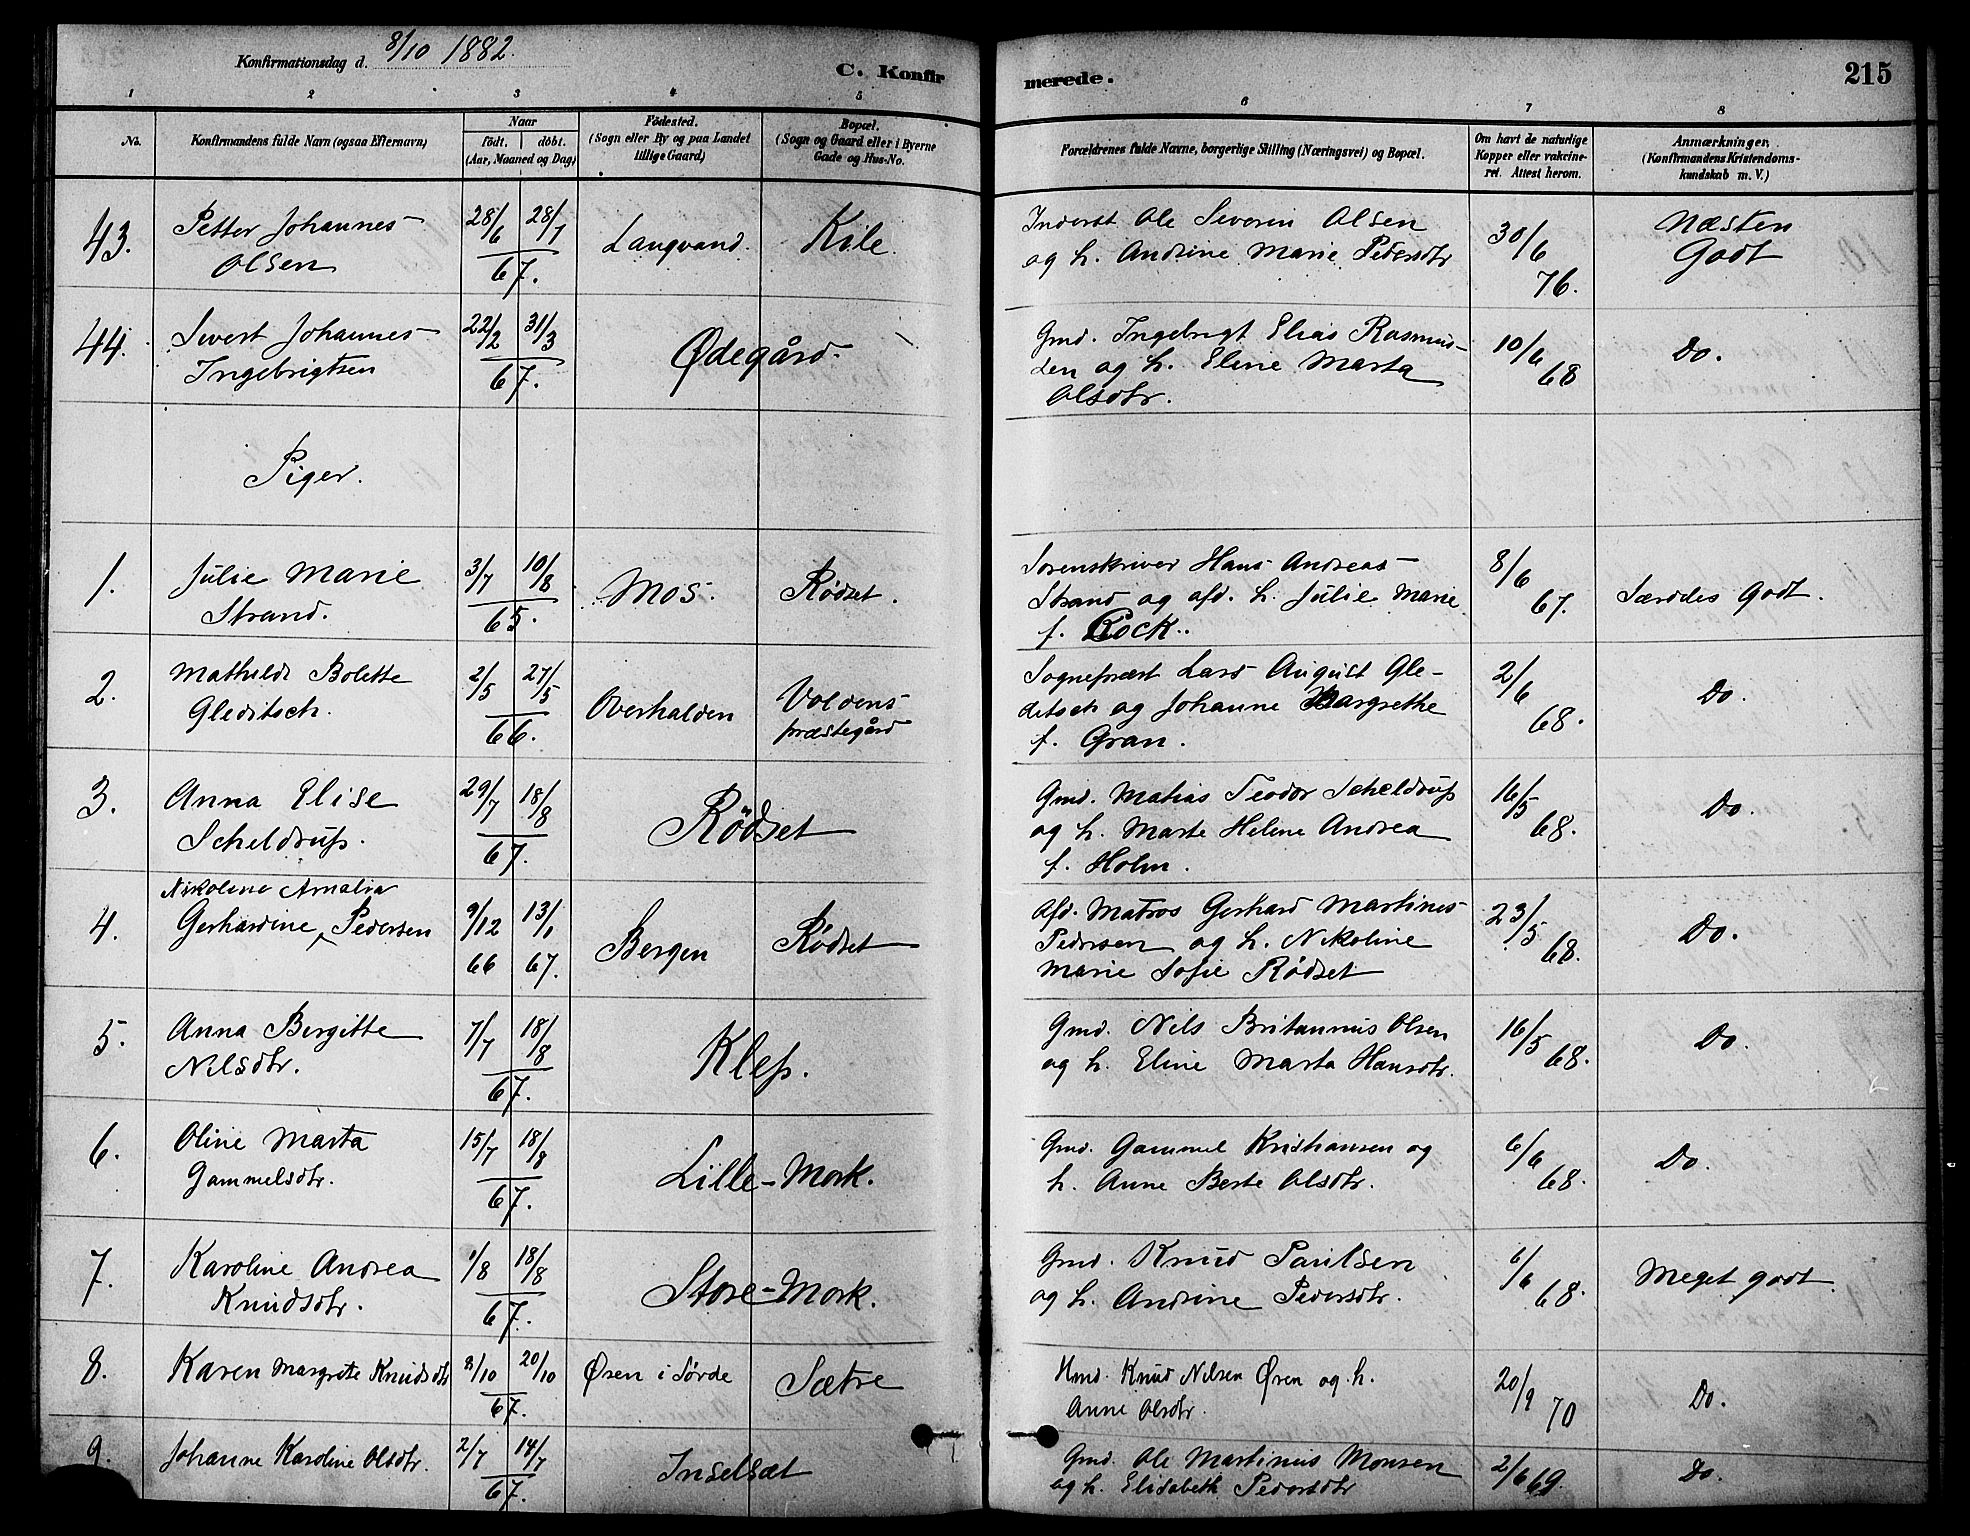 Konfirmationsdag d. 8/10 1882.
C. Konfirmerede.
215
1 2 3 4 5 6 7 8
No.
Konfirmandens fulde Navn (ogsaa Efternavn)
Naar
født. døbt.
(Aar, Maaned og Dag)
Fødested.
(Sogn eller By og paa Landet
tillige Gaard)
Bopæl.
(Sogn og Gaard eller i Byerne
Gade og Hus-No.
Forældrenes fulde Navne, borgerlige Stilling (Næringsvei) og Bopæl.
Om havt de naturlige
Kopper eller vakcine-
ret. Attest herom.
Anmærkninger.
(Konfirmandens Kristendoms-
kundskab m. V.)
43. Petter Johannes 28/6 28/7 Langvand. Kile. Inderst Ole Severin Olsen 30/6 Næsten
Olsen 67. og h. Andrine Marie Pedersdtr 76. Godt
44. Sivert Johannes 22/2 31/3 Ødegård. Gmd. Ingebrigt Elias Rasmus- 10/6 Do.
Ingebrigtsen 67. den og h. Eline Marta 68
Olsdtr.
Piger.
1. Julie Marie 3/7 10/8 Mos. Rödset. Sorenskriver Hans Andreas 8/6 Særdes Godt.
Strand. 65. Strand og afd. h. Julie Marie 67.
f. Kock.
2. Mathilde Bolette 2/5 27/5 Overhalden Voldens Sognepræst Lars August Gle- 2/6 Do.
Gleditsch. 66. præstegård ditsch og Johanne Margrethe 68.
f. Gran.
3. Anna Elise 29/7 18/8 Rödset Gmd. Matias Teodor Scheldrup 16/5 Do.
Scheldrup. 67. og h. Marte Helene Andrea 68.
f. Holm.
Nikoline Amalia
4. Gerhardine Pedersen 9/12 13/1 Bergen Rödset Afd. Matros Gerhard Martines 23/5 Do.
66 67. Pedersen og h. Nikoline 68.
Marie Sofie Rödset
5. Anna Bergitte 7/7 18/8 Klep. Gmd. Nils Britannus Olsen 16/5 Do.
Nilsdtr. 67. og h. Eline Marta Hansdtr. 68.
6. Oline Marta 15/7 18/8 Lille-Mork. Gmd. Gammel Kristiansen og 6/6 Do.
Gammelsdtr. 67. h. Anne Berte Olsdtr. 68.
7. Karoline Andrea 1/8 18/8 Store-Mork. Gmd. Knud Paulsen 6/6 Meget godt.
Knudsdtr. 67. og h. Andrine Pedersdtr. 68.
8. Karen Margrete Knudsdtr 8/10 20/10 Øren i Sörde Sætre Hmd. Knud Nilsen Øren og h. 20/9 Do.
67. Anne Olsdtr. 70
9. Johanne Karoline Olsdtr. 2/7 14/7 Inselsæt Gmd. Ole Martinus Monsen 2/6 69. Do.
67. og h. Elisabeth Pedersdtr